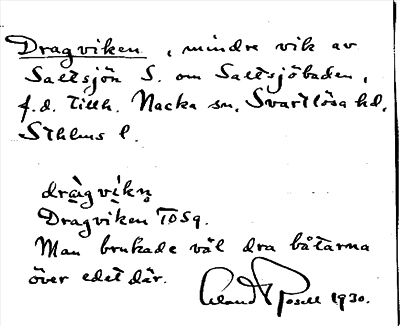 Dragviken, mindre vik av
Saltsjön S. om Saltsjöbaden,
f.d. tillh. Nacka sn, Svartlösa hd,
Sthlms l.
dràgvíkn̥
Dragviken TOSq.
Man brukade väl dra båtarna
över edet där.
1930.